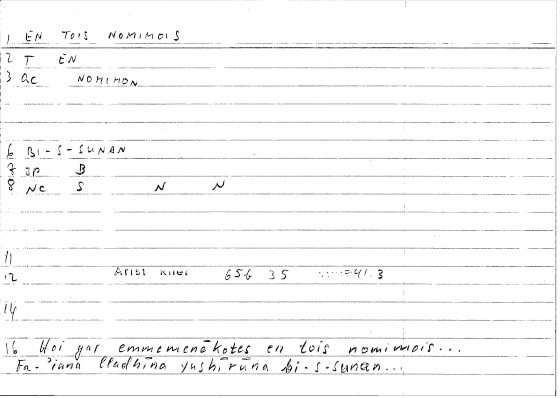 1 EN TOIS NOMIMOIS
2 T EN
3 QC NOMIMON
6 BI-S-SUNAN
7 JP B
8 NC S N N
11
12 Arist Rhet 656 35 41.3
14
16 Hoi gar emmemenēkotes en tois nomimois...
Fa-'inna lladhīna yushīrūna bi-s-sunan...